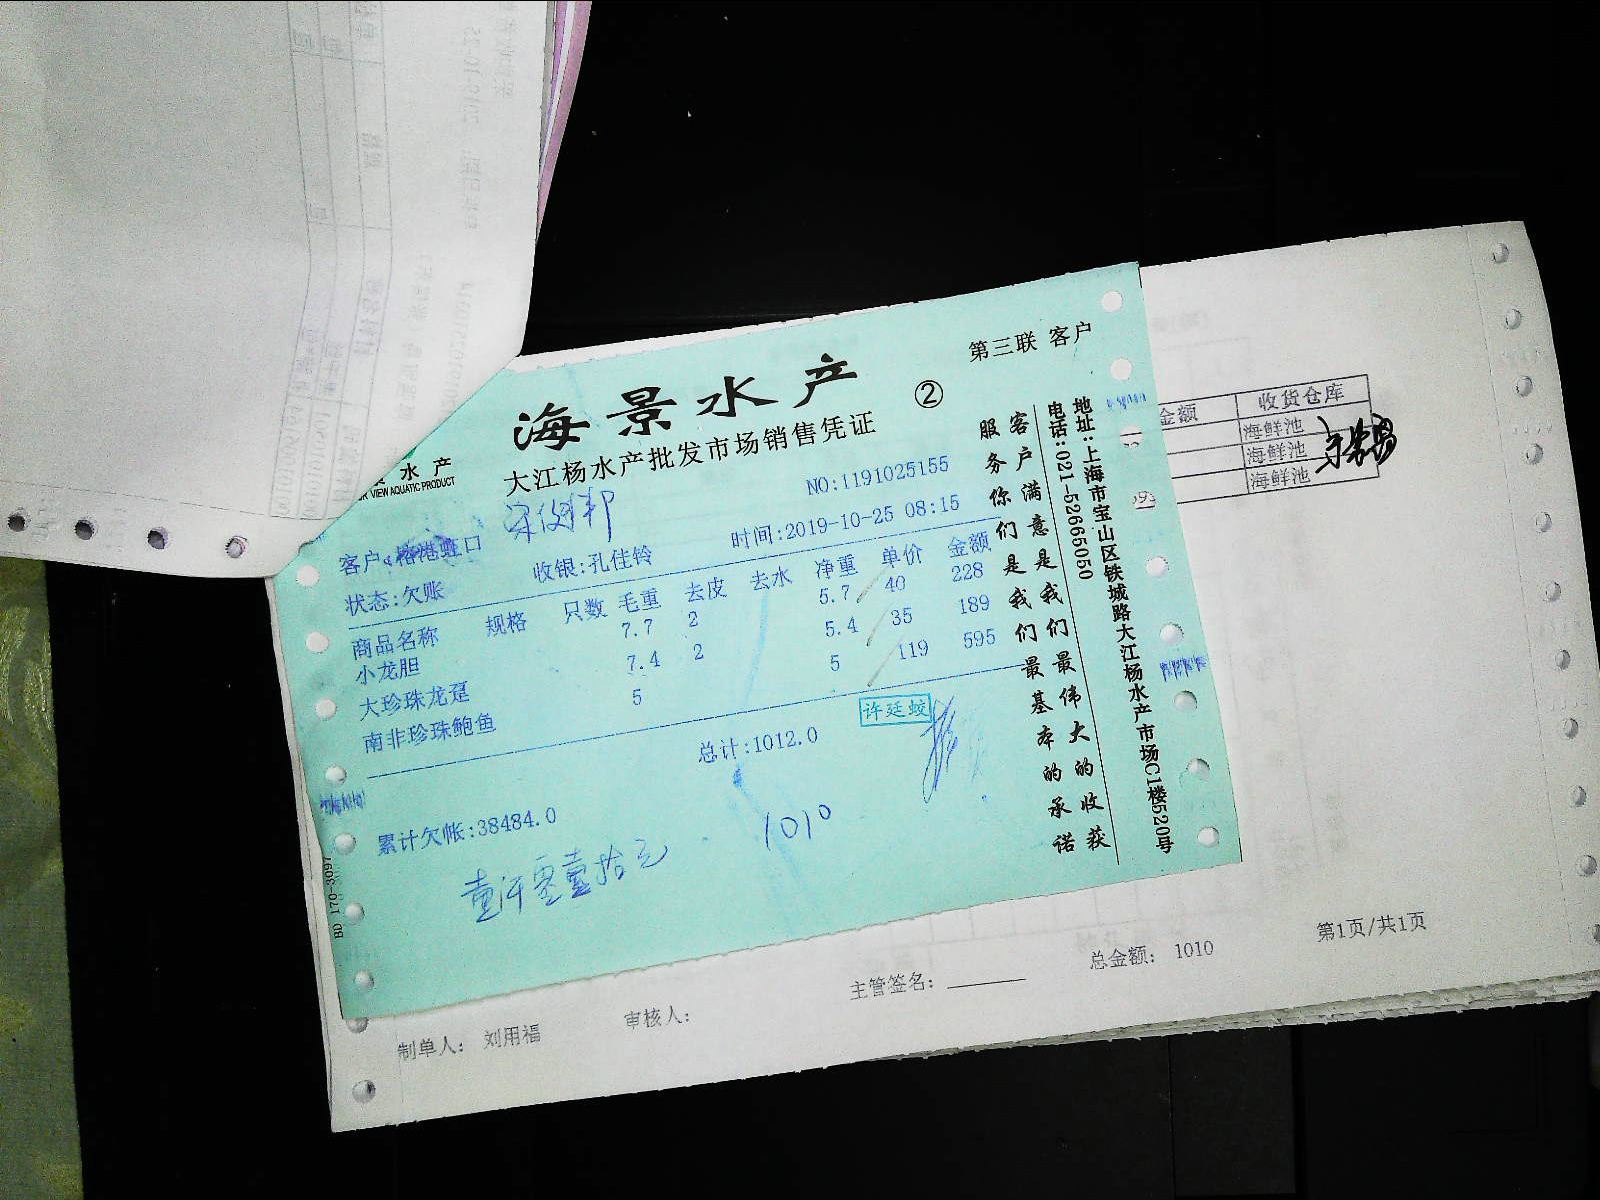 第三联 客户
海景水产
②
大江杨水产批发市场销售凭证
水产
VIEW AQUATIC PRODUCT
NO:1191025155
客户:榕港虹口
收银:孔佳铃
时间:2019-10-25 08:15
状态:欠账
商品名称 规格 只数 毛重 去皮 去水 净重 单价 金额
小龙胆 7.7 2 5.7 40 228
大珍珠龙趸 7.4 2 5.4 35 189
南非珍珠鲍鱼 5 5 119 595
总计:1012.0
许廷蛟
累计欠帐:38484.0
壹仟零壹拾元
1010
客户满意是我们最伟大的收获
服务你们是我们最基本的承诺
地址:上海市宝山区铁城路大江杨水产市场C1楼520号
电话:021-52665050
BD 170-3097
金额 收货仓库
海鲜池
海鲜池
海鲜池
制单人: 刘用福
审核人:
主管签名:
总金额: 1010
第1页/共1页